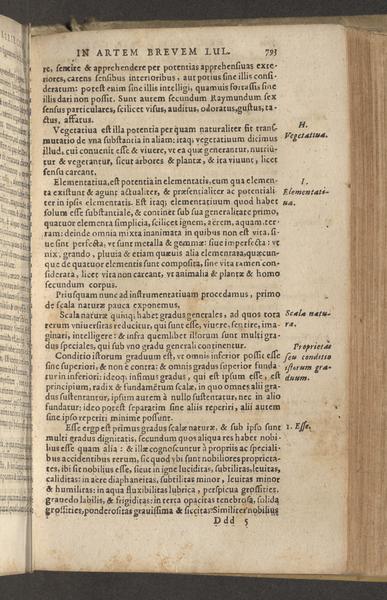 IN ARTEM BREVEM LUL. 793
re, sentire & apprehendere per potentias apprehensiuas exte-
riores, carens sensibus interioribus, aut potius sine illis consi-
deratum: potest enim sine illis intelligi, quamuis fortassis sine
illis dari non possit. Sunt autem secundum Raymundum sex
sensus particulares, scilicet visus, auditus, odoratus, gustus, ta-
ctus, affatus.
Vegetatiua est illa potentia per quam naturaliter fit trans-
mutatio de vna substantia in aliam: itaq; vegetatiuum dicimus
illud, cui conuenit esse & viuere, vt ea quæ generantur, nutriū-
tur & vegetantur, sicut arbores & plantæ, & ita viuunt, licet
sensu careant.
H.
Vegetatiua.
Elementatiua, est potentia in elementatis, cum qua elemen-
ta existunt & agunt actualiter, & præsentialiter ac potentiali-
ter in ipsis elementatis. Est itaq; elementatiuum quod habet
solum esse substantiale, & continet sub sua generalitate primo,
quatuor elementa simplicia, scilicet ignem, aërem, aquam, ter-
ram: deinde omnia mixta inanimata in quibus non est vita, si-
ue sint perfecta, vt sunt metalla & gemmæ: siue imperfecta: vt
nix, grando, pluuia & etiam quæuis alia elementata, quæcun-
que de quatuor elementis sunt composita, sine vita tamen con-
siderata, licet vita non careant, vt animalia & plantæ & homo
secundum corpus.
I.
Elementati-
ua.
Priusquam autem ad instrumentatiuam procedamus, primo
de scala naturæ pauca exponemus,
Scala naturæ quinq; habet gradus generales, ad quos tota
rerum vniuersitas reducitur, qui sunt esse, viuere, sentire, ima-
ginari, intelligere: & infra quemlibet illorum sunt multi gra-
dus speciales, qui sub vno gradu generali continentur.
Scala natu-
ra.
Conditio istorum graduum est, vt omnis inferior possit esse
sine superiori, & non è contra: & omnis gradus superior funda-
tur in inferiori: ideoq; infimus gradus, qui est ipsum esse, est
principium, radix & fundamētum scalæ, in quo omnes alii gra-
dus sustentantur, ipsum autem à nullo sustentatur, nec in alio
fundatur: ideo potest separatim sine aliis reperiri, alii autem
sine ipso reperiri minime possunt.
Proprietas
seu conditio
istorum gra-
duum.
Esse ergo est primus gradus scalæ naturæ, & sub ipso sunt
multi gradus dignitatis, secundum quos aliqua res habet nobi-
lius esse quam alia: & illæ cognoscuntur à propriis ac speciali-
bus accidentibus rerum, sic quod vbi sunt nobiliores proprieta-
tes, ibi sit nobilius esse, sicut in igne luciditas, subtilitas, leuitas,
caliditas: in aëre diaphaneitas, subtilitas minor, leuitas minor
& humiditas: in aqua fluxibilitas lubrica, perspicua grossities,
grauedo labilis, & frigiditas: in terra opacitas tenebrosa, solida
grossities, ponderositas grauissima & siccitas. Similiter nobilius
1. Esse.
Ddd 5